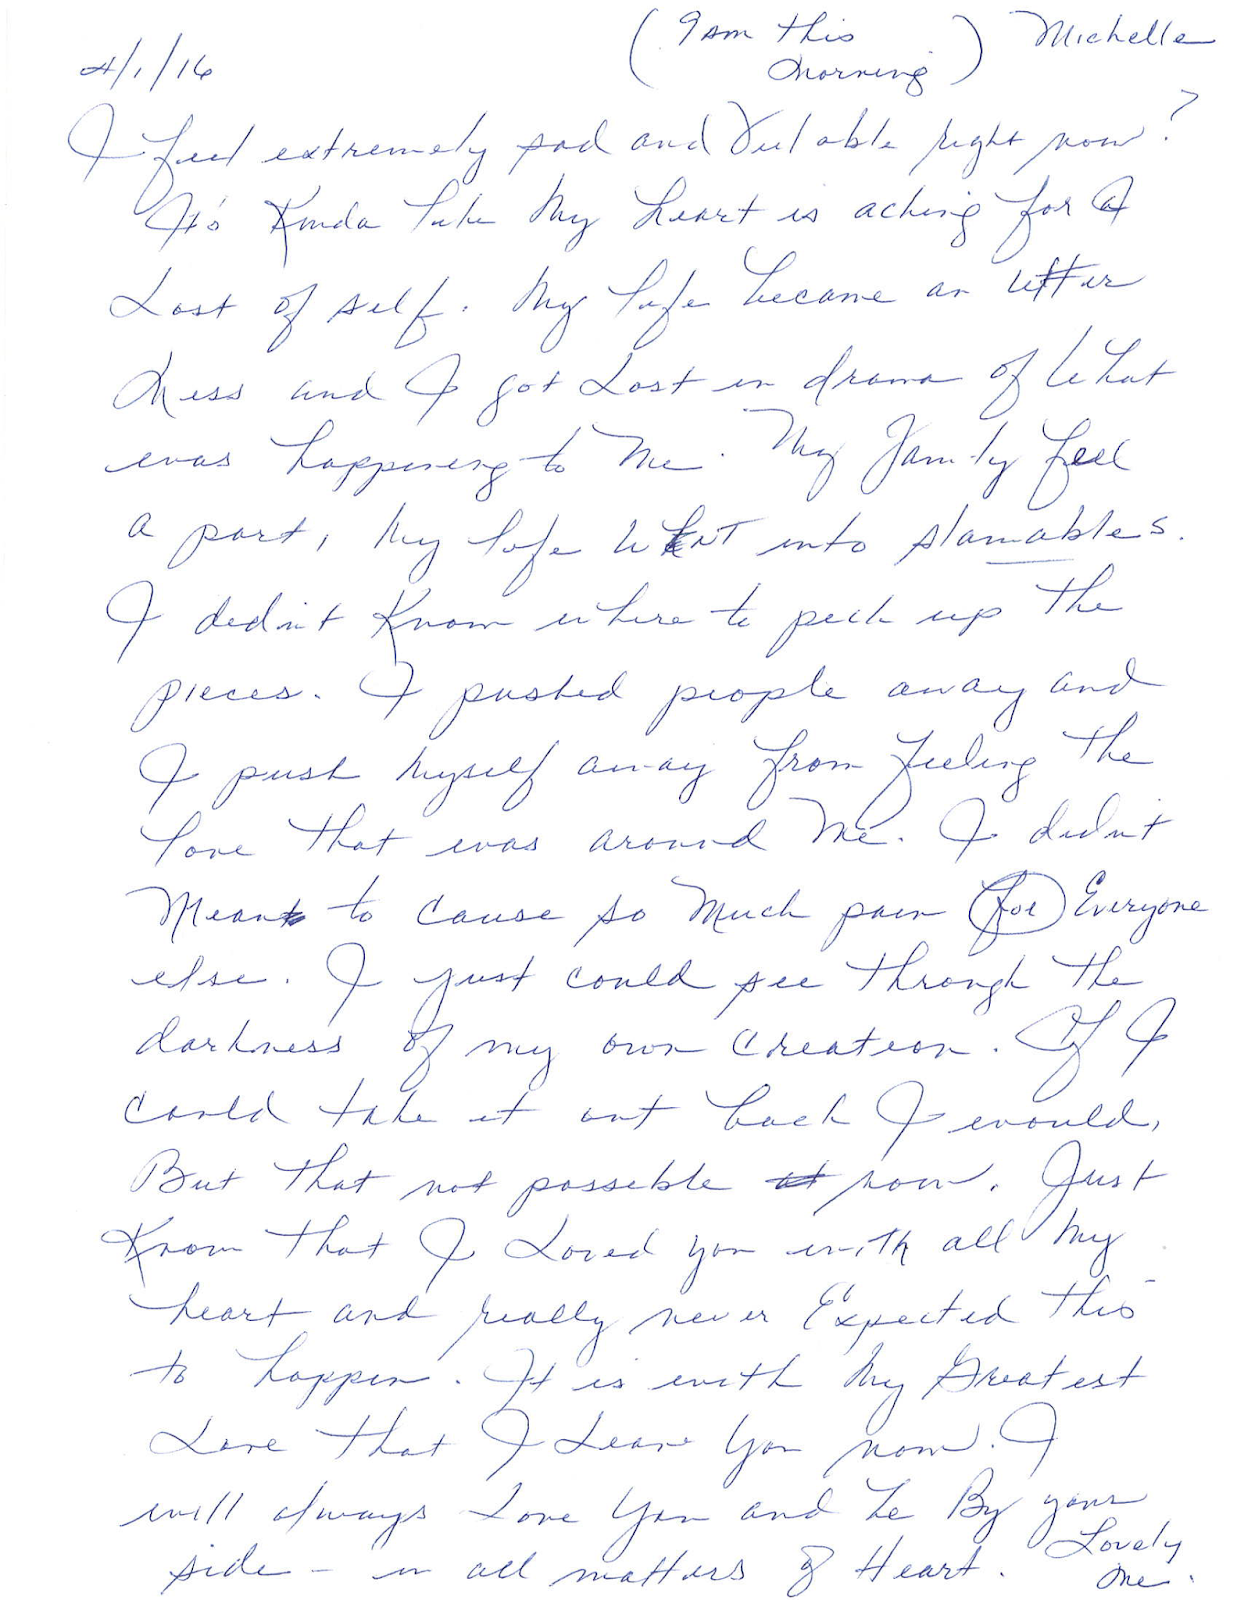 (9am this morning) Michelle
4/1/16
I feel extremely sad and Vulable right now?
It's Kinda like My heart is aching for a
Lost of self. My life became an utter
Mess and I got Lost in drama of What
was happening to Me. My Family feel
a part, My life WENT into shamables.
I didn't Know where to pick up the
pieces. I pushed people away and
I push Myself away from feeling the
love that was around Me. I didn't
Mean to cause so Much pain for Everyone
else. I just could see through the
darkness of my own creation. If I
could take it out back I would,
But that not possible now. Just
Know that I Loved you with all My
heart and really never Expected this
to happen. It is with My Greatest
Love that I Leave You now. I
will always Love You and be By your
side - in all matters of Heart. Lovely
Me.